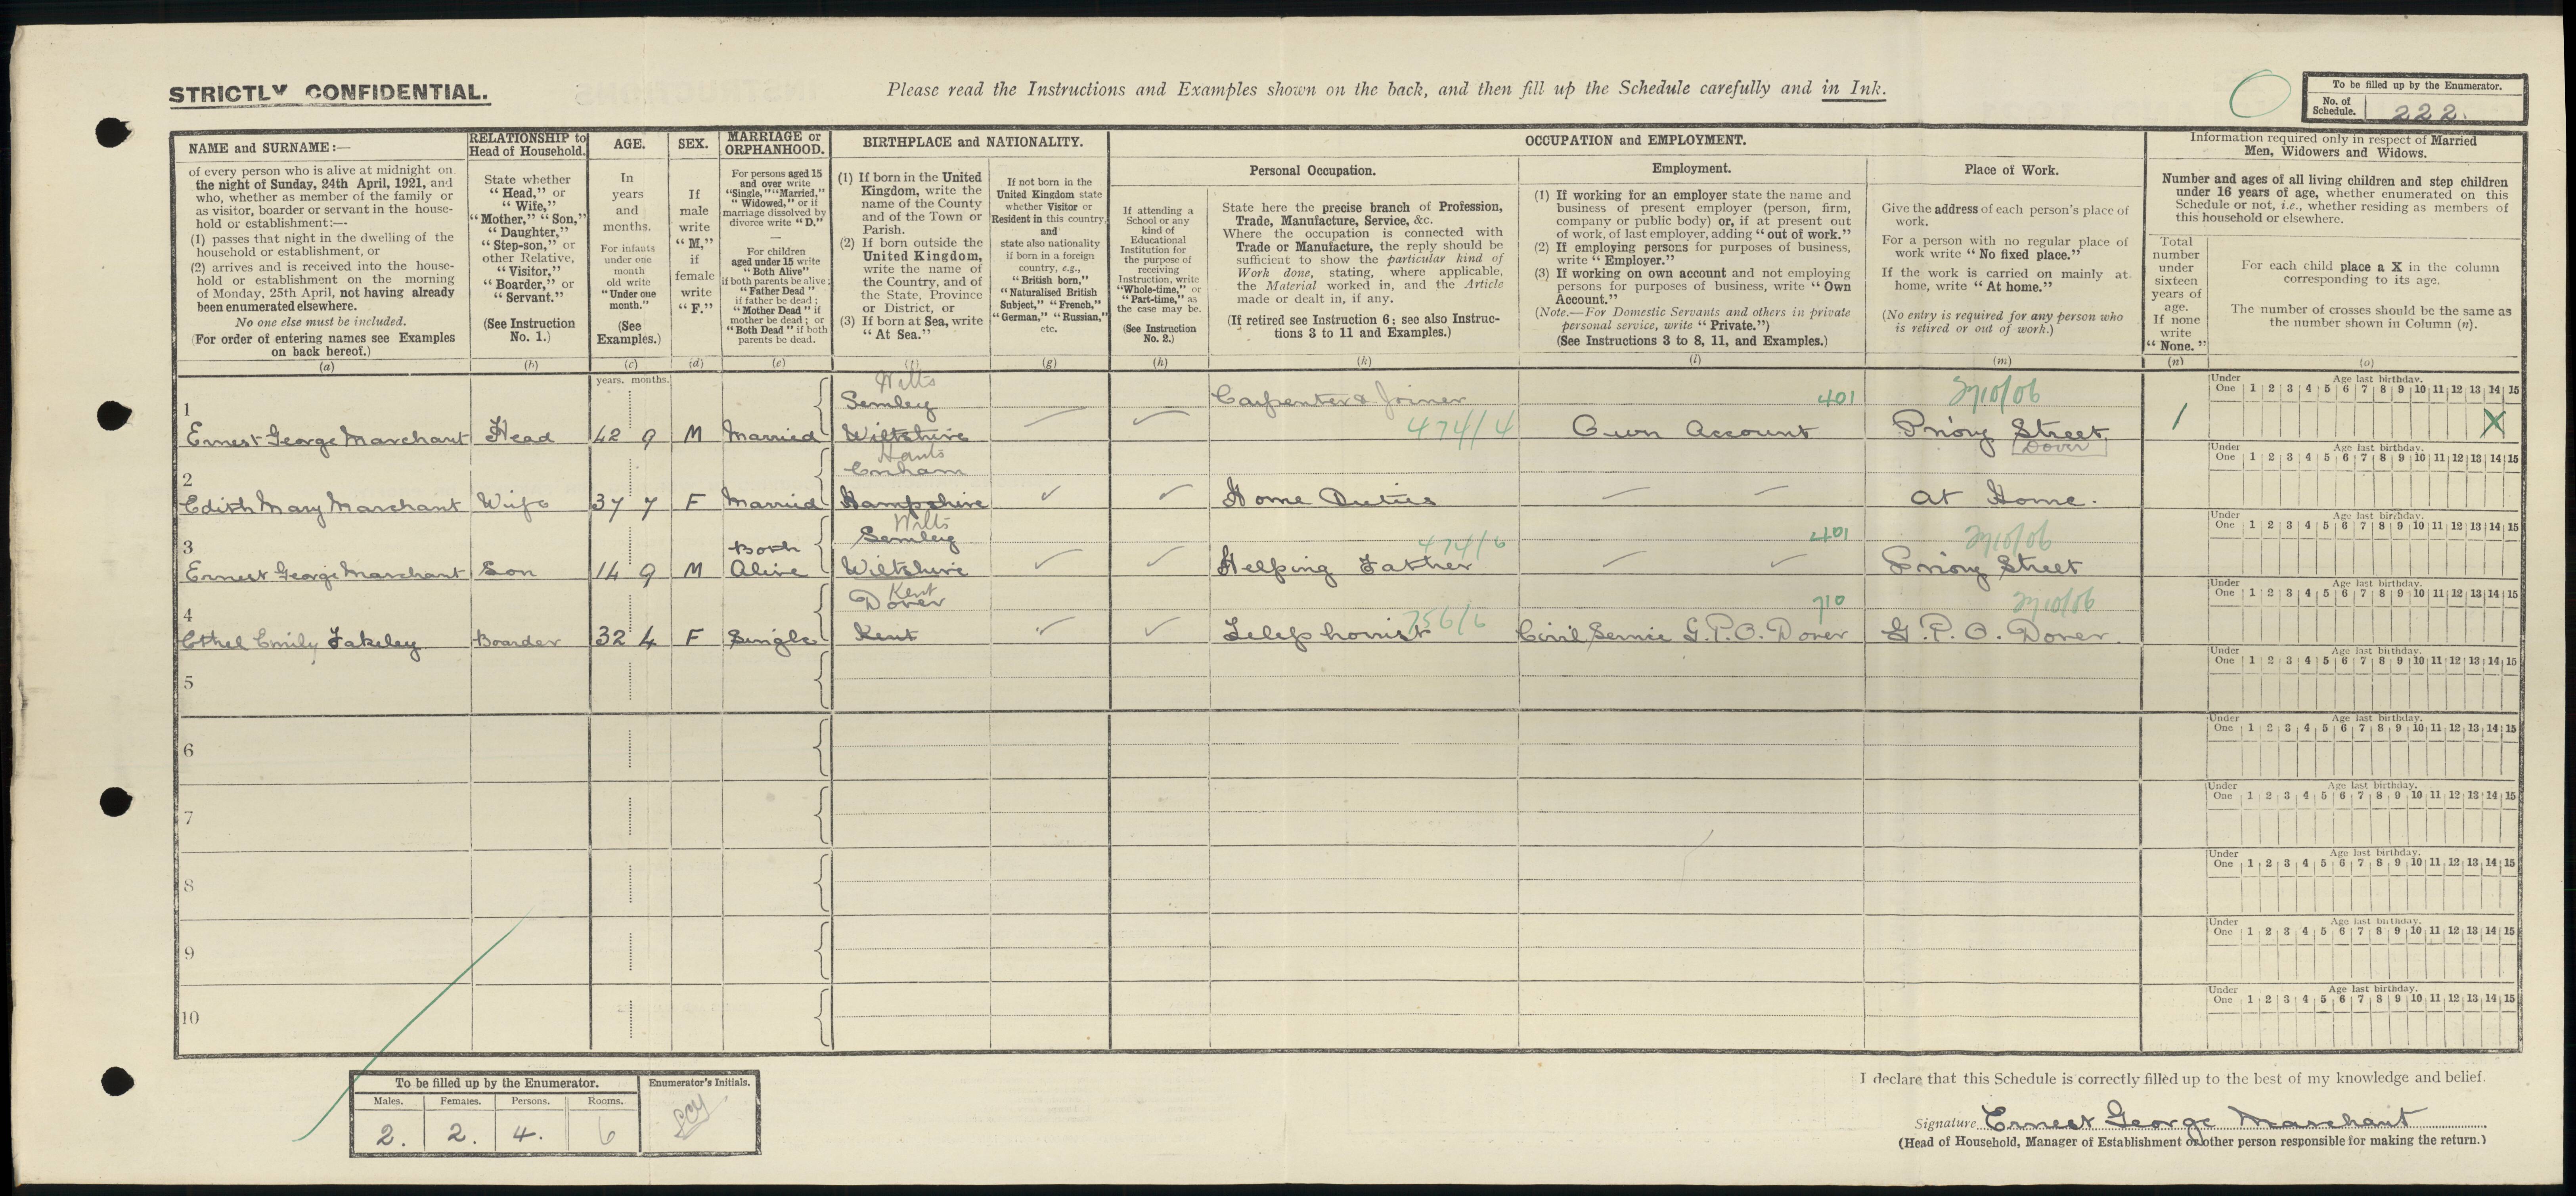 STRICTLY CONFIDENTIAL.
Please read the Instructions and Examples shown on the back, and then fill up the Schedule carefully and in Ink.
To be filled up by the Enumerator.
No. of Schedule. 222.
NAME and SURNAME:—
of every person who is alive at midnight on
the night of Sunday, 24th April, 1921, and
who, whether as member of the family or
as visitor, boarder or servant in the house-
hold or establishment:—
(1) passes that night in the dwelling of the
household or establishment, or
(2) arrives and is received into the house-
hold or establishment on the morning
of Monday, 25th April, not having already
been enumerated elsewhere.
No one else must be included.
(For order of entering names see Examples
on back hereof.)
(a)
RELATIONSHIP to
Head of Household.
State whether
"Head," or
"Wife,"
"Mother," "Son,"
"Daughter,"
"Step-son," or
other Relative,
"Visitor,"
"Boarder," or
"Servant."
(See Instruction
No. 1.)
(b)
AGE.
In
years
and
months.
For infants
under one
month
old write
"Under one
month."
(See
Examples.)
(c)
SEX.
If
male
write
"M,"
if
female
write
"F."
(d)
MARRIAGE or
ORPHANHOOD.
For persons aged 15
and over write
"Single," "Married,"
"Widowed," or if
marriage dissolved by
divorce write "D."
For children
aged under 15 write
"Both Alive"
if both parents be alive;
"Father Dead"
if father be dead;
"Mother Dead" if
mother be dead; or
"Both Dead" if both
parents be dead.
(e)
BIRTHPLACE and NATIONALITY.
(1) If born in the United
Kingdom, write the
name of the County
and of the Town or
Parish.
(2) If born outside the
United Kingdom,
write the name of
the Country, and of
the State, Province
or District, or
(3) If born at Sea, write
"At Sea."
(f)
If not born in the
United Kingdom state
whether Visitor or
Resident in this country,
and
state also nationality
if born in a foreign
country, e.g.,
"British born,"
"Naturalised British
Subject," "French,"
"German," "Russian,"
etc.
(g)
OCCUPATION and EMPLOYMENT.
If attending a
School or any
kind of
Educational
Institution for
the purpose of
receiving
Instruction, write
"Whole-time," or
"Part-time," as
the case may be.
(See Instruction
No. 2.)
(h)
Personal Occupation.
State here the precise branch of Profession,
Trade, Manufacture, Service, &c.
Where the occupation is connected with
Trade or Manufacture, the reply should be
sufficient to show the particular kind of
Work done, stating, where applicable,
the Material worked in, and the Article
made or dealt in, if any.
(If retired see Instruction 6; see also Instruc-
tions 3 to 11 and Examples.)
(k)
Employment.
(1) If working for an employer state the name and
business of present employer (person, firm,
company or public body) or, if at present out
of work, of last employer, adding "out of work."
(2) If employing persons for purposes of business,
write "Employer."
(3) If working on own account and not employing
persons for purposes of business, write "Own
Account."
(Note.—For Domestic Servants and others in private
personal service, write "Private.")
(See Instructions 3 to 8, 11, and Examples.)
(l)
Place of Work.
Give the address of each person's place of
work.
For a person with no regular place of
work write "No fixed place."
If the work is carried on mainly at
home, write "At home."
(No entry is required for any person who
is retired or out of work.)
(m)
Information required only in respect of Married
Men, Widowers and Widows.
Number and ages of all living children and step children
under 16 years of age, whether enumerated on this
Schedule or not, i.e., whether residing as members of
this household or elsewhere.
Total
number
under
sixteen
years of
age.
If none
write
"None."
(n)
For each child place a X in the column
corresponding to its age.
The number of crosses should be the same as
the number shown in Column (n).
(o)
years. months.
1 Ernest George Marchant Head 42 9 M Married Wilts Semley Wiltshire Carpenter & Joiner 474/4 Own Account 401 Priory Street Dover 1 X
Under One 1 2 3 4 5 6 7 8 9 10 11 12 13 14 15 Age last birthday.
2 Edith Mary Marchant Wife 37 7 F Married Hants Enham Hampshire Home Duties At Home.
Under One 1 2 3 4 5 6 7 8 9 10 11 12 13 14 15 Age last birthday.
3 Ernest George Marchant Son 14 9 M Both Alive Wilts Semley Wiltshire Helping Father 474/6 401 Priory Street
Under One 1 2 3 4 5 6 7 8 9 10 11 12 13 14 15 Age last birthday.
4 Ethel Emily Fakeley Boarder 32 4 F Single Kent Dover Kent Telephonist Civil Servic G.P.O. Dover 710 G.P.O. Dover.
Under One 1 2 3 4 5 6 7 8 9 10 11 12 13 14 15 Age last birthday.
5
Under One 1 2 3 4 5 6 7 8 9 10 11 12 13 14 15 Age last birthday.
6
Under One 1 2 3 4 5 6 7 8 9 10 11 12 13 14 15 Age last birthday.
7
Under One 1 2 3 4 5 6 7 8 9 10 11 12 13 14 15 Age last birthday.
8
Under One 1 2 3 4 5 6 7 8 9 10 11 12 13 14 15 Age last birthday.
9
Under One 1 2 3 4 5 6 7 8 9 10 11 12 13 14 15 Age last birthday.
10
Under One 1 2 3 4 5 6 7 8 9 10 11 12 13 14 15 Age last birthday.
To be filled up by the Enumerator.
Males. Females. Persons. Rooms.
2. 2. 4. 6
Enumerator's Initials.
I declare that this Schedule is correctly filled up to the best of my knowledge and belief.
Signature Ernest George Marchant
(Head of Household, Manager of Establishment or other person responsible for making the return.)